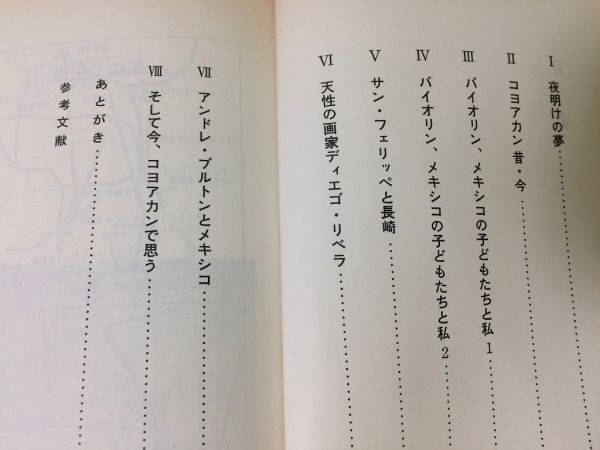 I 夜明けの夢
II コヨアカン 昔・今
III バイオリン、メキシコの子どもたちと私 1
IV バイオリン、メキシコの子どもたちと私 2
V サン・フェリッペと長崎
VI 天性の画家ディエゴ・リベラ
VII アンドレ・ブルトンとメキシコ
VIII そして今、コヨアカンで思う
あとがき
参考文献